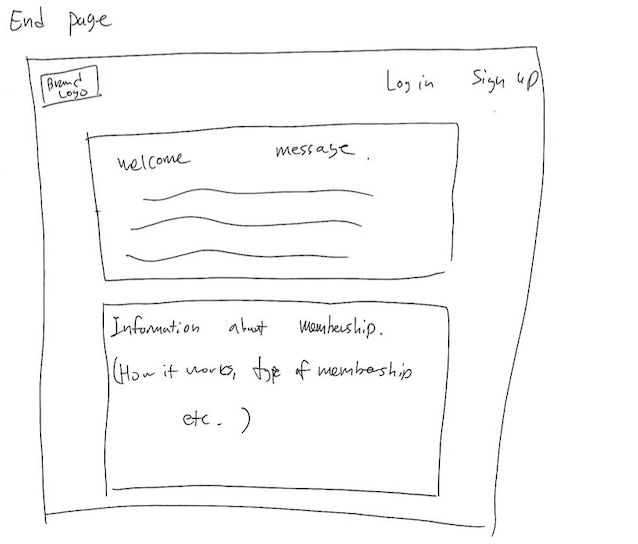 End page
Brand
Logo
Log in
Sign up
welcome message.
Information about membership.
(How it works, type of membership
etc. )